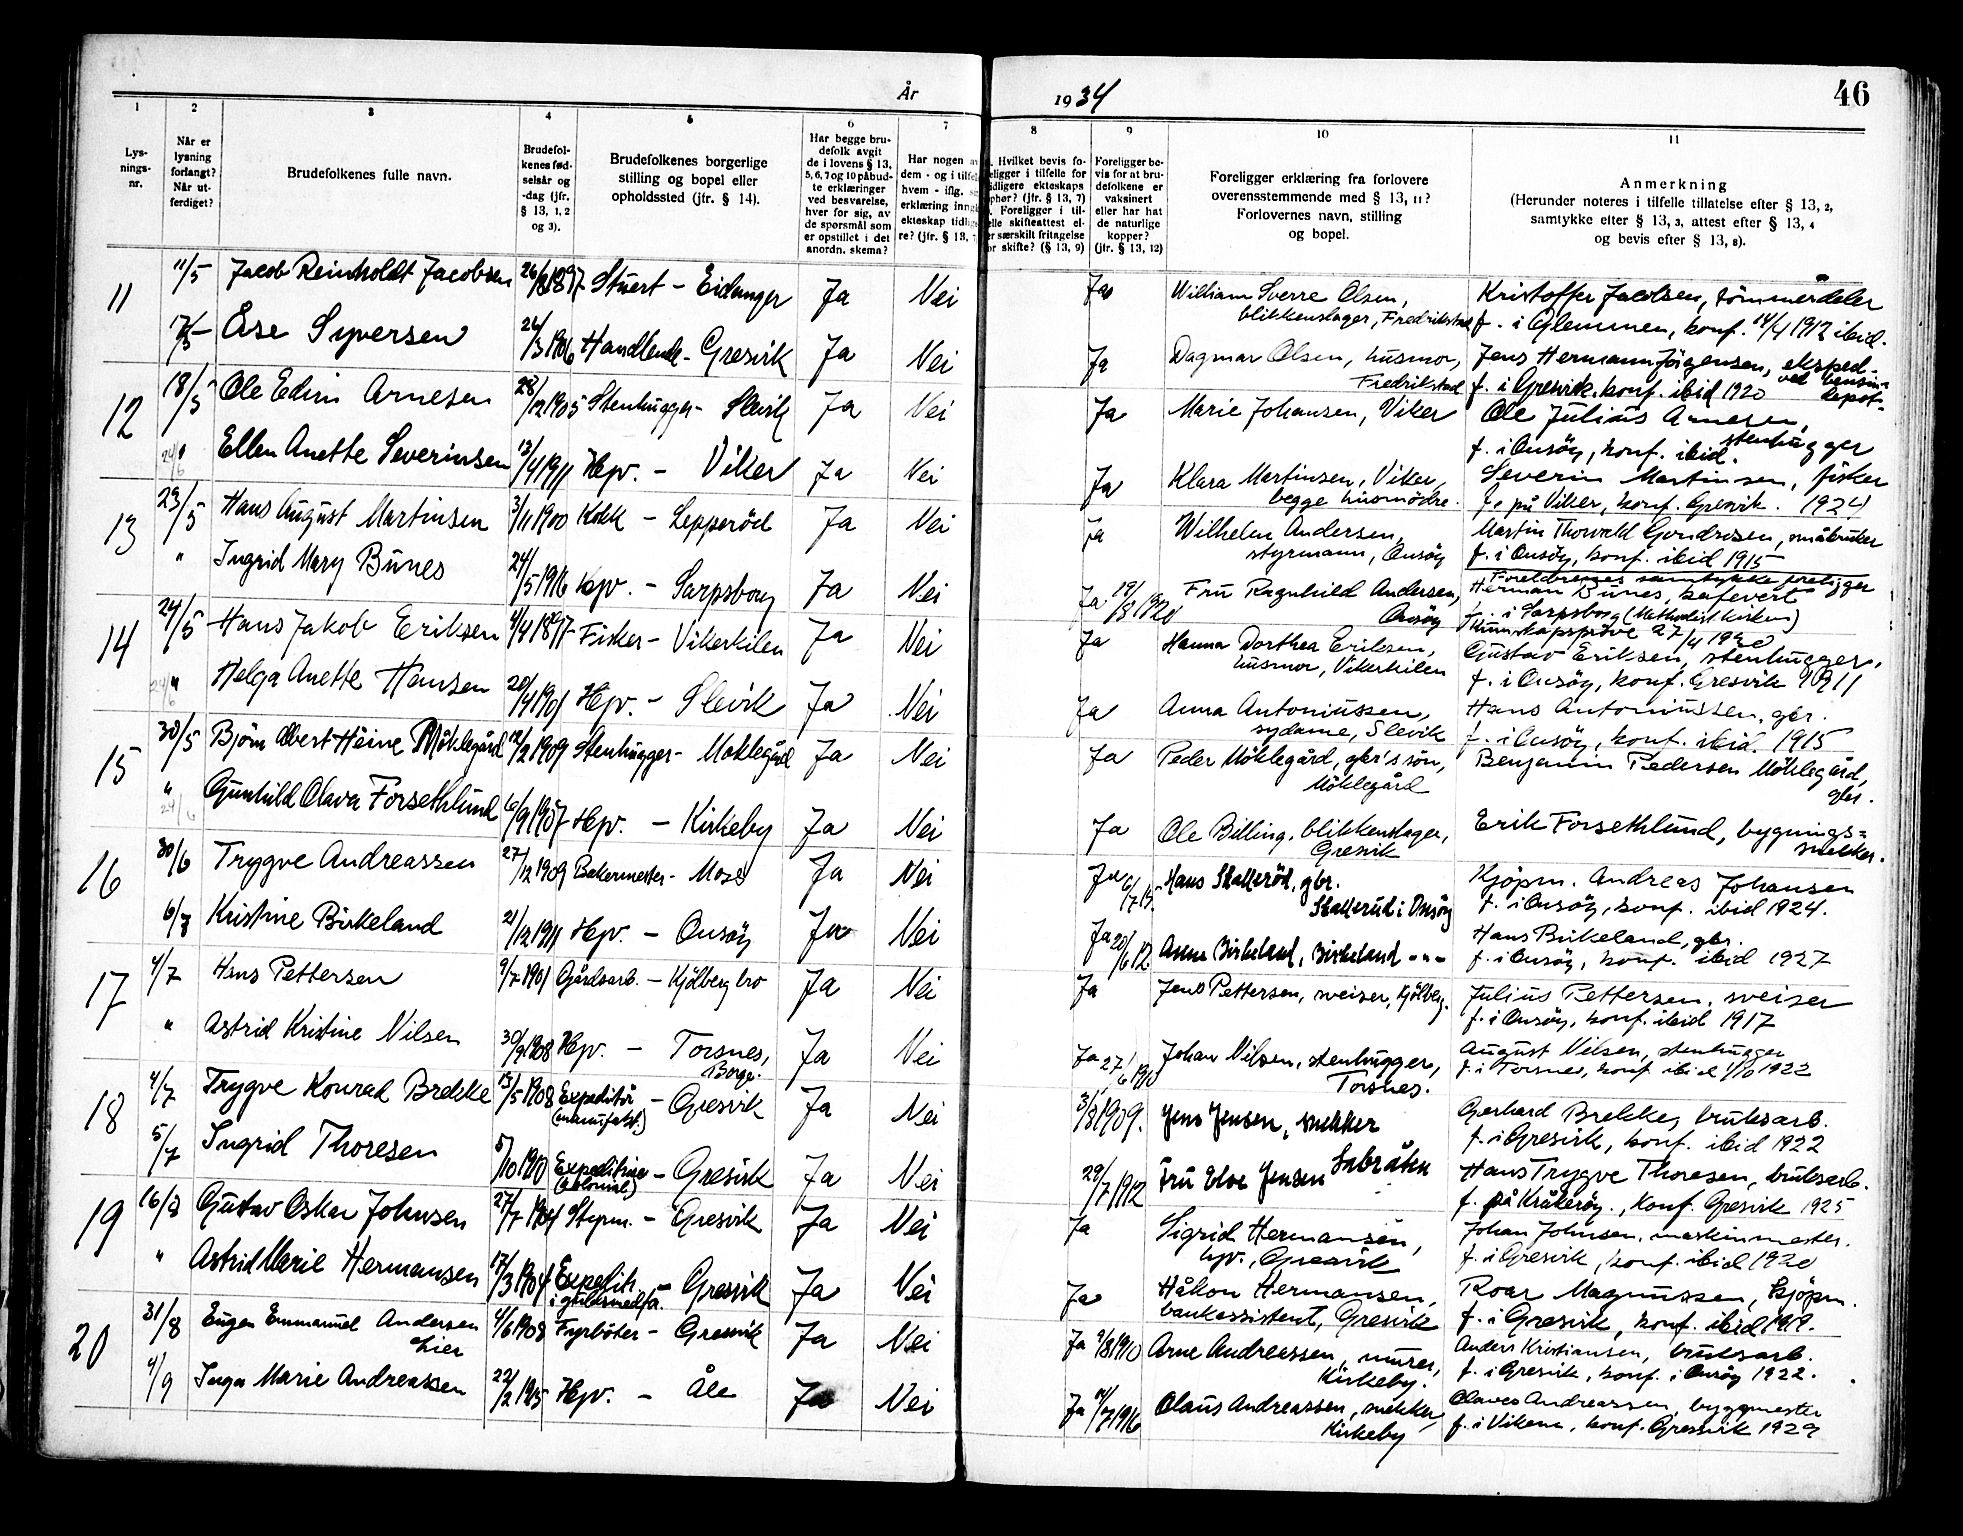 År 1934
46
1 2 3 4 5 6 7 8 9 10 11
Lys-
nings-
nr.
Når er
lysning
forlangt?
Når ut-
ferdiget?
Brudefolkenes fulle navn.
Brudefol-
kenes fød-
selsår og
-dag (jfr.
§ 13, 1, 2
og 3).
Brudefolkenes borgerlige
stilling og bopel eller
opholdssted (jfr. § 14).
Har begge bru-
defolk avgit
de i lovens § 13,
5, 6, 7 og 10 påbud-
te erklæringer
ved besvarelse,
hver for sig, av
de spørsmål som
er opstillet i det
anordn. skema?
Har nogen av
dem - og i tilfelle
hvem - iflg.
erklæring inngått
ekteskap tidlige-
re? (jfr. § 13,
Hvilket bevis fo-
religger i tilfelle for
tidligere ekteskaps
ophør? (jfr. § 13, 7)
Foreligger i til-
felle skifteattest el-
er særskilt fritagelse
for skifte? (§ 13, 9)
Foreligger be-
vis for at bru-
defolkene er
vaksinert
eller har hat
de naturlige
kopper?
(jfr. § 13, 12)
Foreligger erklæring fra forlovere
overensstemmende med § 13, 11?
Forlovernes navn, stilling
og bopel.
Anmerkning
(Herunder noteres i tilfelle tillatelse efter § 13, 2,
samtykke efter § 13, 3, attest efter § 13, 4
og bevis efter § 13, 8).
11 11/5 Jacob Reinholdt Jacobsen 1897 Stuert - Eidanger Ja Nei Ja William Sverre Olsen, Kristoffer Jacobsen, tömmerdeler
blikkenslager, Fredrikstad f. i Glemmen, konf. 14/4 1912 ibid.
Else Syversen 26/3 1906 Handlende - Gresvik Ja Nei Ja Dagmar Olsen, husmor, Jens Hermann Jörgensen, eksped.
Fredrikstad ved bensin-
f. i Gresvik, konf. ibid 1920 depot.
12 18/5 Ole Edin Arnesen 28/12 1905 Stenhugger - Slevik Ja Nei Ja Marie Johansen, Viker Ole Julius Arnesen,
stenhugger
f. i Onsöy, konf. ibid.
24/6 " Ellen Anette Severinsen 13/4 1911 Hpv. - Viker Ja Nei Ja Klara Martinsen, Viker, Severin Martinsen, fisker
begge husmödre. f. på Viker, konf. Gresvik. 1924
13 23/5 Hans August Martinsen 3/11 1900 Kokk - Lepperöd Ja Nei Ja Wilhelm Andersen, Martin Thorvald Gundersen, småbruker
styrmann, Onsöy f. i Onsöy, konf. ibid 1915
" Ingrid Mary Bunes 24/5 1916 Hpv. - Sarpsborg Ja Nei Ja 19/8 1920 Fru Ragnhild Andersen, Foreldrenes samtykke foreligger
Onsöy Herman Bunes, kafevert
f. i Sarpsborg (Methodistkirken)
Kunnskapspröve 27/4 1930
14 24/5 Hans Jakob Eriksen 4/4 1897 Fisker - Vikerkilen Ja Nei Ja Hanna Dorthea Eriksen, Gustav Eriksen, stenhugger,
husmor, Vikerkilen f. i Onsöy, konf. Gresvik 1911
24/6 " Helga Anette Hansen 20/4 1901 Hpv. - Slevik Ja Nei Ja Anna Antoniussen, Hans Antoniussen, gbr.
sydame, Slevik f. i Onsöy, konf. ibid. 1915
15 30/5 Björn Albert Heine Möklegård 12/2 1909 Stenhugger - Möklegård Ja Nei Ja Peder Möklegård, gbr's sön, Benjamin Pedersen Möklegård,
Möklegård gbr.
24/6 " Gunhild Olava Forsethlund 6/9 1907 Hpv. - Kirkeby Ja Nei Ja Ole Billing, blikkenslager, Erik Forsethlund, bygnings=
Gresvik snekker.
16 30/6 Trygve Andreassen 27/12 1909 Bakermester - Moss Ja Nei Ja 6/7 15 Hans Skalleröd, gbr. Kjöpm. Andreas Johansen
Skallerud i Onsöy f. i Onsöy, konf. ibid 1924.
6/7 Kristine Birkeland 21/12 1911 Hpv. - Onsöy Ja Nei Ja 20/6 12 Anna Birkeland, Birkeland - " - Hans Birkeland, gbr.
f. i Onsöy, konf. ibid 1927
17 4/7 Hans Pettersen 9/7 1901 Gårdsarb. - Kjölberg bro Ja Nei Ja Jens Pettersen, sveiser, Kjölberg. Julius Pettersen, sveiser
f. i Onsöy, konf. ibid 1917
" Astrid Kristine Nilsen 30/9 1908 Hpv. - Torsnes, Ja Nei Ja 27/6 1910 Johan Nilsen, stenhugger, August Nilsen, stenhugger
Borge. Torsnes. f. i Torsnes, konf ibid 1/10 1922
18 4/7 Trygve Konrad Brekke 13/5 1908 Expeditör - Gresvik Ja Nei 3/8 1909. Jens Jensen, snekker Gerhard Brekke, bruksarb.
(manufakt.) f. i Gresvik, konf. ibid 1922
5/7 Ingrid Thoresen 5/10 1910 Expeditrise - Gresvik Ja Nei 29/7 1912 Fru Elve Jensen Hans Trygve Thoresen, bruksarb.
(Kolonial.) f. på Kråkeröy, Konf. Gresvik 1925
19 16/8 Gustav Oskar Johnsen 27/7 1904 Styrm. - Gresvik Ja Nei Ja Sigrid Hermansen, Johan Johnsen, maskinmester.
hpv., Gresvik f. i Gresvik, konf. ibid 1920
" Astrid Marie Hermansen 17/3 1904 Expedit. - Gresvik Ja Nei Ja Håkon Hermansen, Roar Magnussen, kjöpm.
i gulsmedfa. bankassistent, Gresvik f. i Gresvik, konf. ibid 1919.
20 31/8 Eugen Emmanuel Andersen 4/6 1908 Fyrböter - Gresvik Ja Nei Ja 9/8 1910 Arne Andreassen, murer, Anders Kristiansen, bruksarb.
Lier Kirkeby. f. i Gresvik, konf. i Onsöy 1922.
4/9 Inga Marie Andreassen 22/2 1915 Hpv. - Åle Ja Nei Ja 14/7 1916 Olaus Andreassen, snekker, Olaves Andreassen, byggmester
Kirkeby f. i Vikene, konf. Gresvik 1929